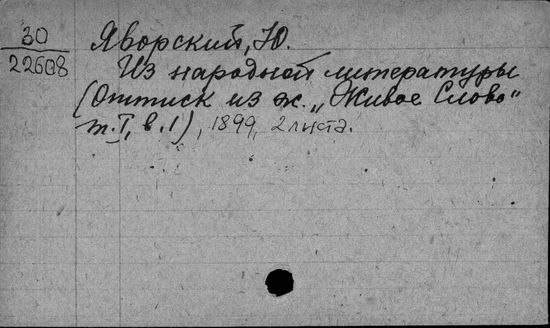 30
22608
Яворский, Ю.
Из народной литературы
(Оттиск из ж. „Живое Слово"
т. I, в. 1), 1899, 2 листа.